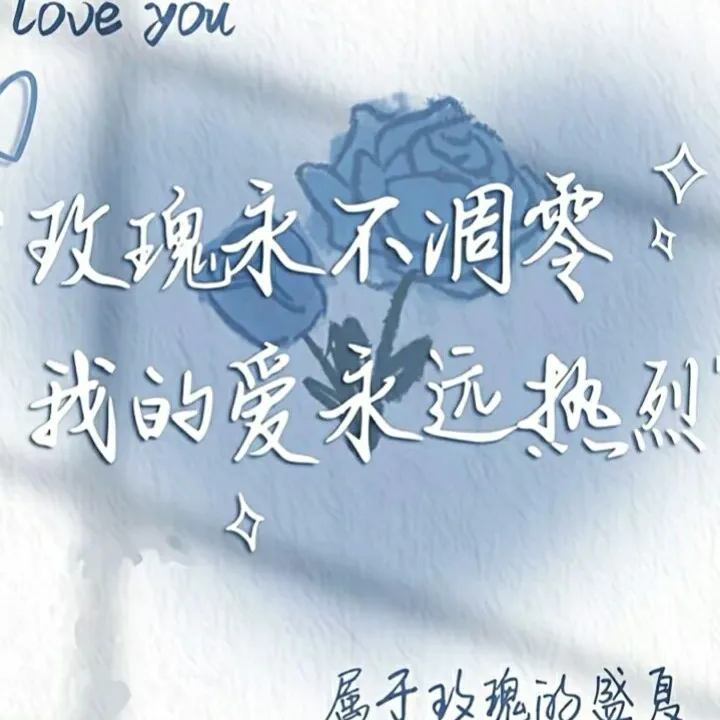 love you
玫瑰永不凋零
我的爱永远热烈
属于玫瑰的盛夏